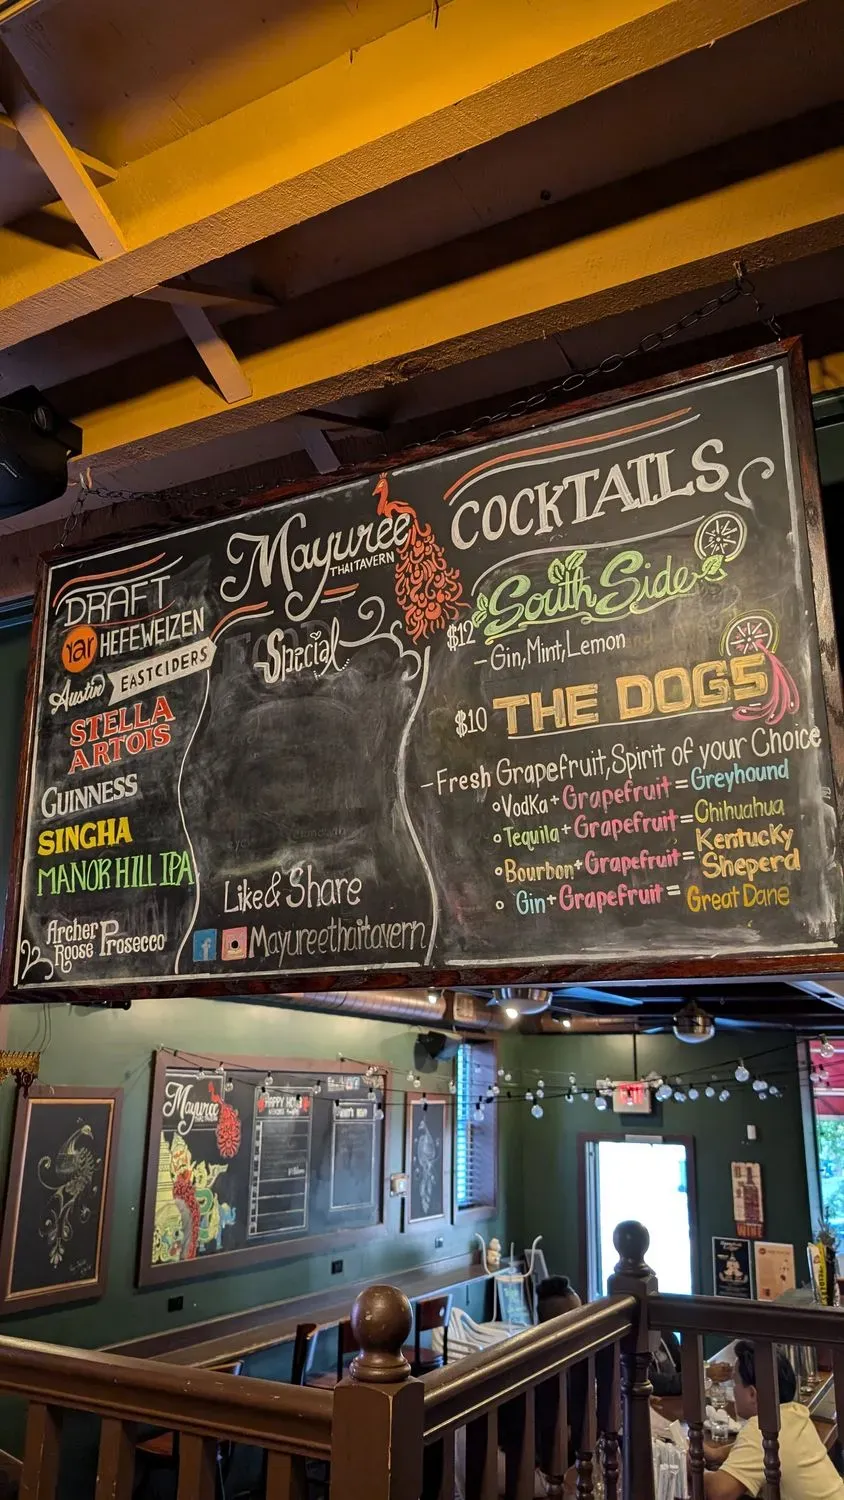 DRAFT
Yar HEFEWEIZEN
Austin EASTCIDERS
STELLA
ARTOIS
GUINNESS
SINGHA
MANOR HILL IPA
Archer
Roose Prosecco
Mayuree
THAI TAVERN
Special
Like & Share
Mayureethaitavern
COCKTAILS
South Side
$12
-Gin, Mint, Lemon
$10 THE DOGS
-Fresh Grapefruit, Spirit of your Choice
Vodka + Grapefruit = Greyhound
Tequila + Grapefruit = Chihuahua
Bourbon + Grapefruit = Kentucky
Sheperd
Gin + Grapefruit = Great Dane
Mayuree
HAPPY HOUR
EXIT
WINE